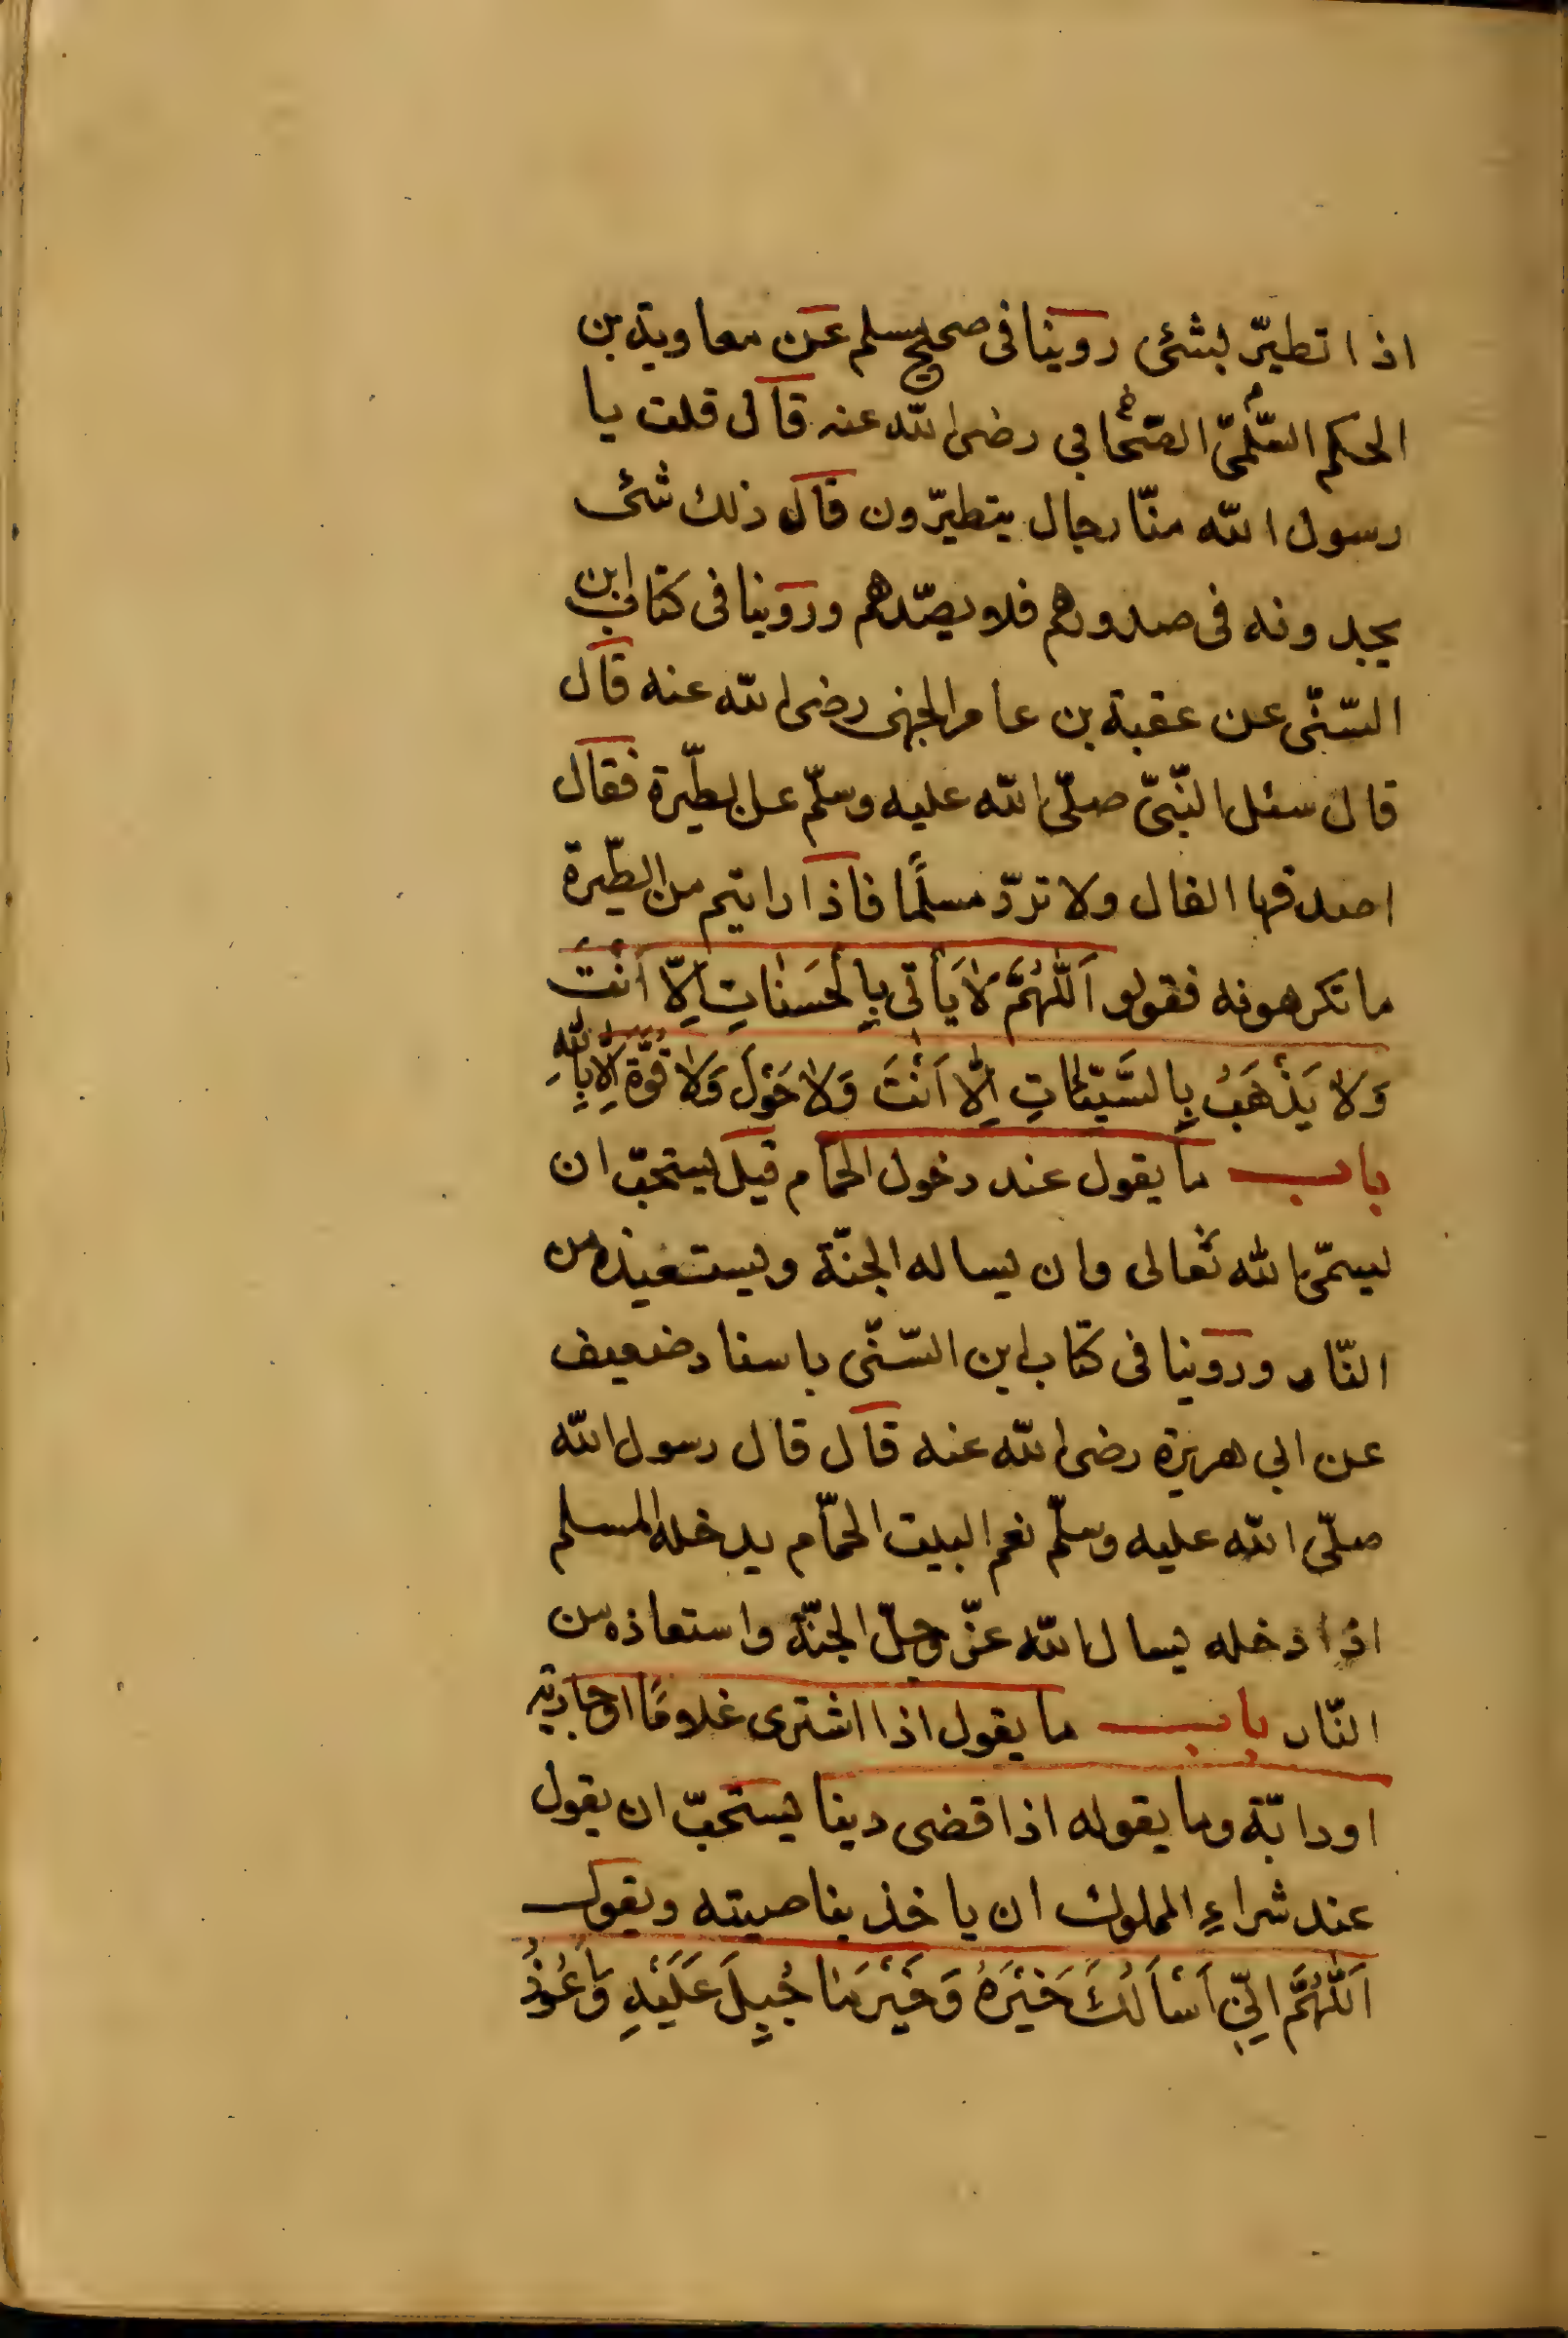 اذا تطيّر بشئ روينا فى صحيح مسلم عن معاوية بن
الحكم السّلمىّ الصّحابي رضى الله عنه قال قلت يا
رسول الله منّا رجال يتطيّرون قال ذلك شئ
يجدونه فى صدورهم فلا يصدّهم وروينا فى كتاب ابن
السّنّى عن عقبة بن عامر الجهنى رضى الله عنه قال
قال سئل النّبىّ صلّى الله عليه وسلّم عن الطّيرة فقال
اصدقها الفال ولا تردّ مسلمًا فاذا رايتم من الطّيرة
ما تكرهونه فقولو اَللّٰهُمَّ لاٰ يَأتى بِالْحَسَنٰاتِ اِلّاٰ اَنْتَ
وَلاٰ يَذْهَبُ بِالسَّيّئٰاتِ اِلّٰا اَنْتَ وَلاٰ حَوْلَ وَلاٰ قُوَّةَ اِلّاٰ بِاللّٰهِ
باب ما يقول عند دخول الحمّام قيل يستحبّ ان
يسمّى الله تعالى وان يساله الجنّة ويستعيذه من
النّار وروينا فى كتاب ابن السّنّى باسناد ضعيف
عن ابى هريرة رضى الله عنه قال قال رسول الله
صلّى الله عليه وسلّم نعم البيت الحمّام يدخله المسلم
اذا دخله يسال الله عزّ وجلّ الجنّة واستعاذه من
النّار باب ما يقول اذا اشترى غلامًا او جارية
او دابّة وما يقوله اذا قضى دينا يستحبّ ان يقول
عند شراءِ المملوك ان ياخذ بناصيته ويقول
اَللّٰهُمَّ اِنّى اَسْاَلُكَ خَيْرَهُ وَخَيْرَ مٰا جُبِلَ عَلَيْهِ وَاَعُوْذُ